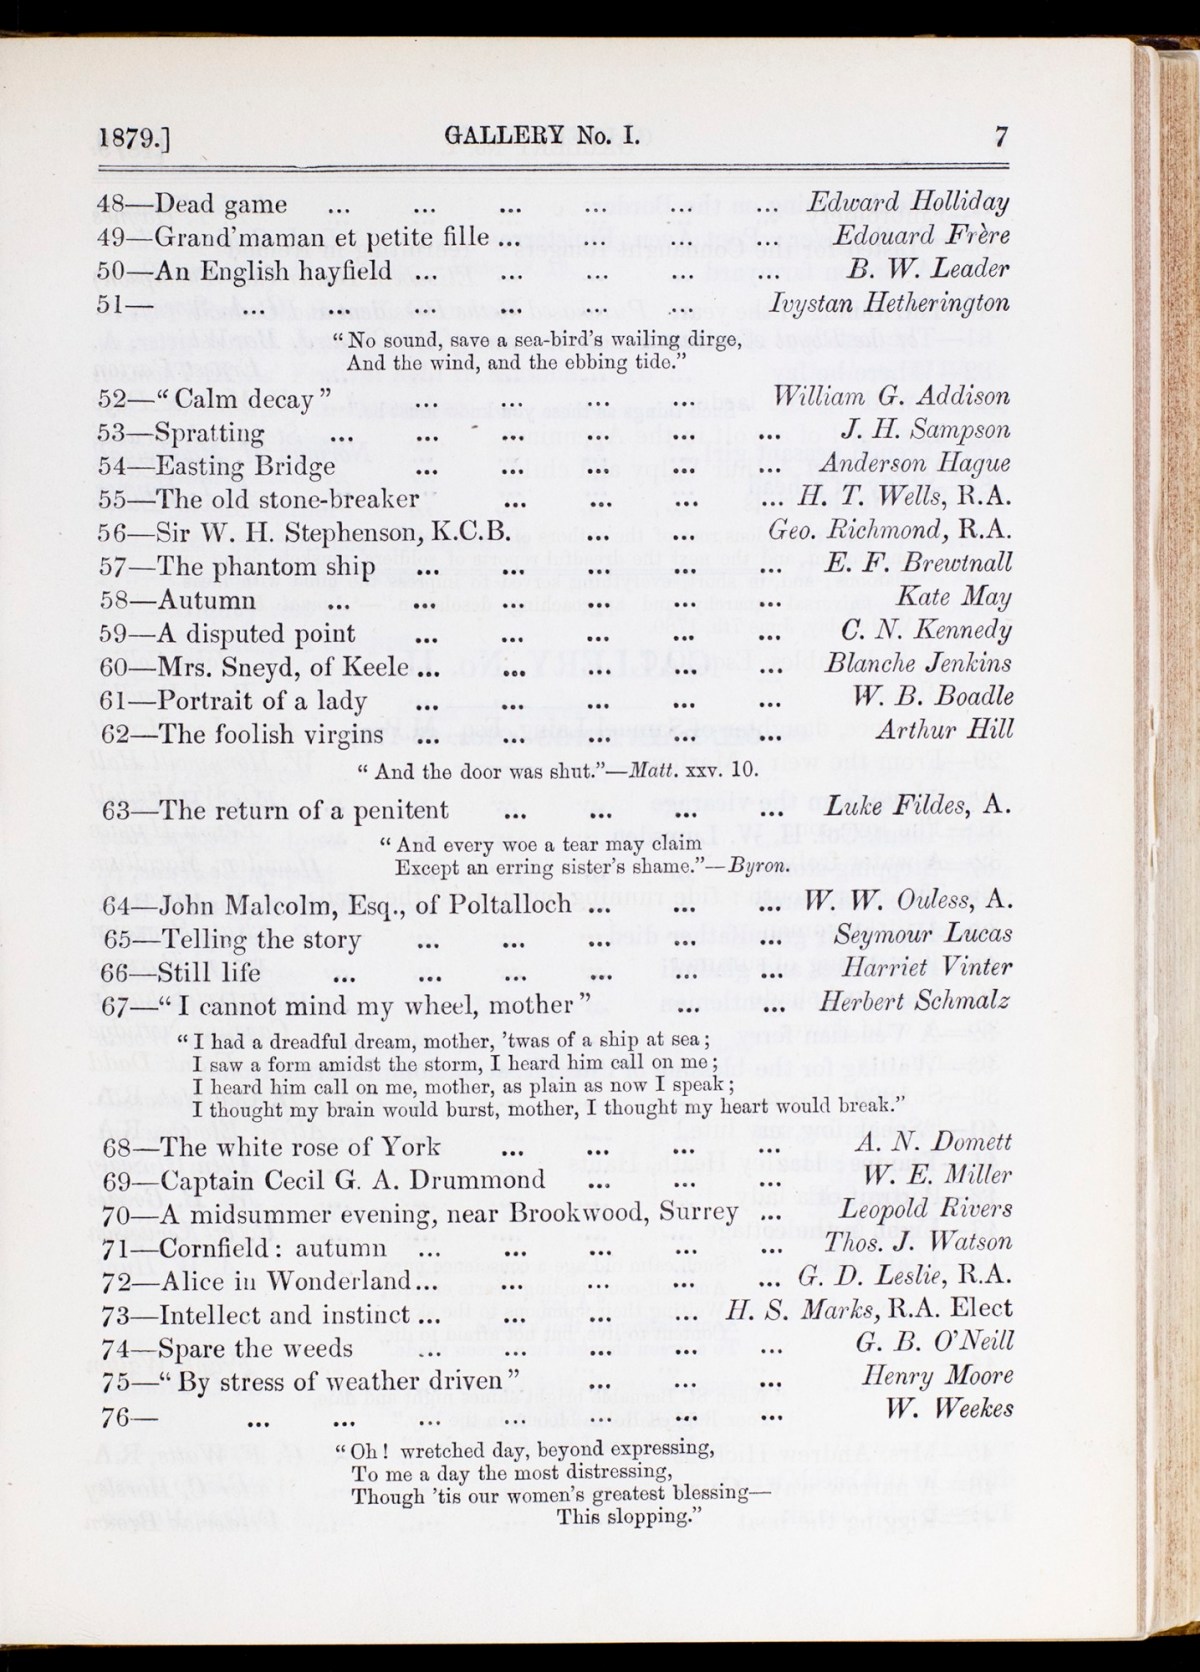 1879.] GALLERY No. I. 7
48—Dead game ... ... ... ... ... ... Edward Holliday
49—Grand'maman et petite fille ... ... ... ... Edouard Frère
50—An English hayfield ... ... ... ... ... B. W. Leader
51— ... ... ... ... ... ... Ivystan Hetherington
“No sound, save a sea-bird's wailing dirge,
And the wind, and the ebbing tide.”
52—“Calm decay” ... ... ... ... William G. Addison
53—Spratting ... ... ... ... ... ... J. H. Sampson
54—Easting Bridge ... ... ... ... ... Anderson Hague
55—The old stone-breaker ... ... ... ... H. T. Wells, R.A.
56—Sir W. H. Stephenson, K.C.B. ... ... Geo. Richmond, R.A.
57—The phantom ship ... ... ... ... ... E. F. Brewtnall
58—Autumn ... ... ... ... ... ... Kate May
59—A disputed point ... ... ... ... ... C. N. Kennedy
60—Mrs. Sneyd, of Keele ... ... ... ... ... Blanche Jenkins
61—Portrait of a lady ... ... ... ... ... W. B. Boadle
62—The foolish virgins ... ... ... ... ... Arthur Hill
“And the door was shut.”—Matt. xxv. 10.
63—The return of a penitent ... ... ... ... Luke Fildes, A.
“And every woe a tear may claim
Except an erring sister's shame.”—Byron.
64—John Malcolm, Esq., of Poltalloch ... ... ... W. W. Ouless, A.
65—Telling the story ... ... ... ... ... Seymour Lucas
66—Still life ... ... ... ... ... ... Harriet Vinter
67—“I cannot mind my wheel, mother” ... ... Herbert Schmalz
“I had a dreadful dream, mother, 'twas of a ship at sea;
I saw a form amidst the storm, I heard him call on me;
I heard him call on me, mother, as plain as now I speak;
I thought my brain would burst, mother, I thought my heart would break.”
68—The white rose of York ... ... ... ... A. N. Domett
69—Captain Cecil G. A. Drummond ... ... ... W. E. Miller
70—A midsummer evening, near Brookwood, Surrey ... Leopold Rivers
71—Cornfield: autumn ... ... ... ... ... Thos. J. Watson
72—Alice in Wonderland ... ... ... ... ... G. D. Leslie, R.A.
73—Intellect and instinct ... ... ... ... H. S. Marks, R.A. Elect
74—Spare the weeds ... ... ... ... ... G. B. O'Neill
75—“By stress of weather driven” ... ... ... Henry Moore
76— ... ... ... ... ... ... ... W. Weekes
“Oh! wretched day, beyond expressing,
To me a day the most distressing,
Though 'tis our women's greatest blessing—
This slopping.”